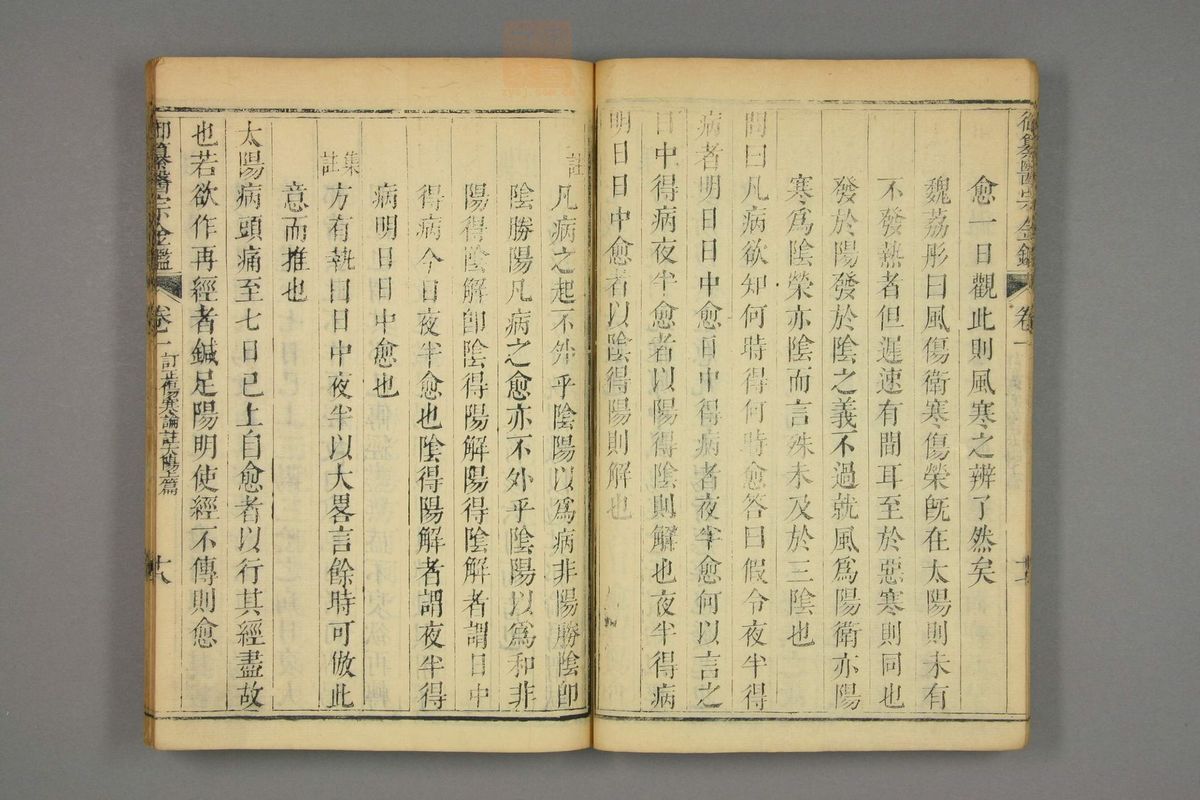 御纂醫宗金鑑 卷一
愈一日觀此則風寒之辨了然矣
魏荔彤曰風傷衛寒傷榮旣在太陽則未有
不發熱者但遲速有間耳至於惡寒則同也
發於陽發於陰之義不過就風爲陽衛亦陽
寒爲陰榮亦陰而言殊未及於三陰也
問曰凡病欲知何時得何時愈答曰假令夜半得
病者明日日中愈日中得病者夜半愈何以言之
日中得病夜半愈者以陽得陰則解也夜半得病
明日日中愈者以陰得陽則解也
註
凡病之起不外乎陰陽以爲病非陽勝陰卽
陰勝陽凡病之愈亦不外乎陰陽以爲和非
陽得陰解卽陰得陽解陽得陰解者謂日中
得病今日夜半愈也陰得陽解者謂夜半得
病明日日中愈也
集註
方有執曰日中夜半以大畧言餘時可倣此
意而推也
太陽病頭痛至七日已上自愈者以行其經盡故
也若欲作再經者鍼足陽明使經不傳則愈
御纂醫宗金鑑 卷一 訂正傷寒論註太陽上篇 十八